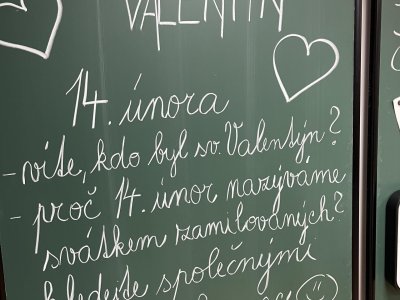 VALENTÝN
14. února
- víte, kdo byl sv. Valentýn?
- proč 14. únor nazýváme
svátkem zamilovaných?
hledejte společnými